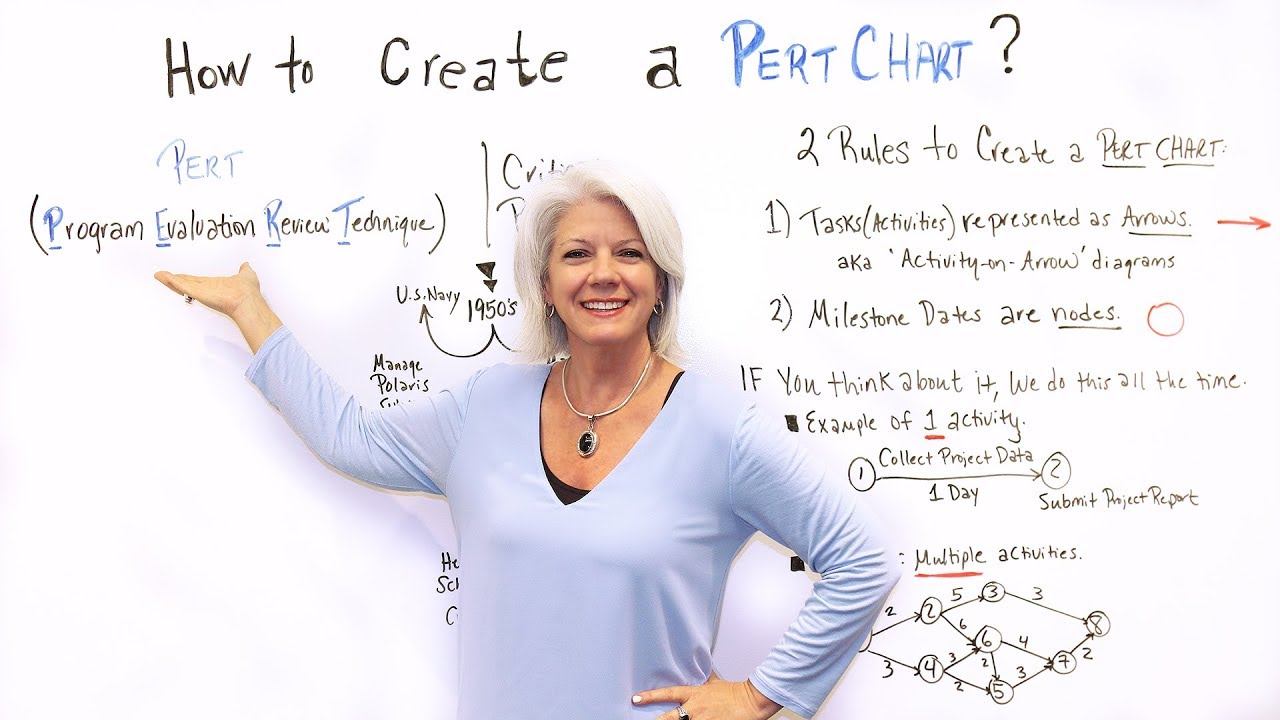 How to Create a PERT CHART?
PERT
(Program Evaluation Review Technique)
U.S. Navy
1950's
Manage
Polaris
2 Rules to Create a PERT CHART:
1) Tasks (Activities) represented as Arrows.
aka 'Activity-on-Arrow' diagrams
2) Milestone Dates are nodes.
IF You think about it, We do this all the time.
Example of 1 activity.
1 Collect Project Data 2
1 Day
Submit Project Report
: Multiple activities.
2 2 5 3 3
6 6 4 8
3 4 3 2 7 2
2 5 3